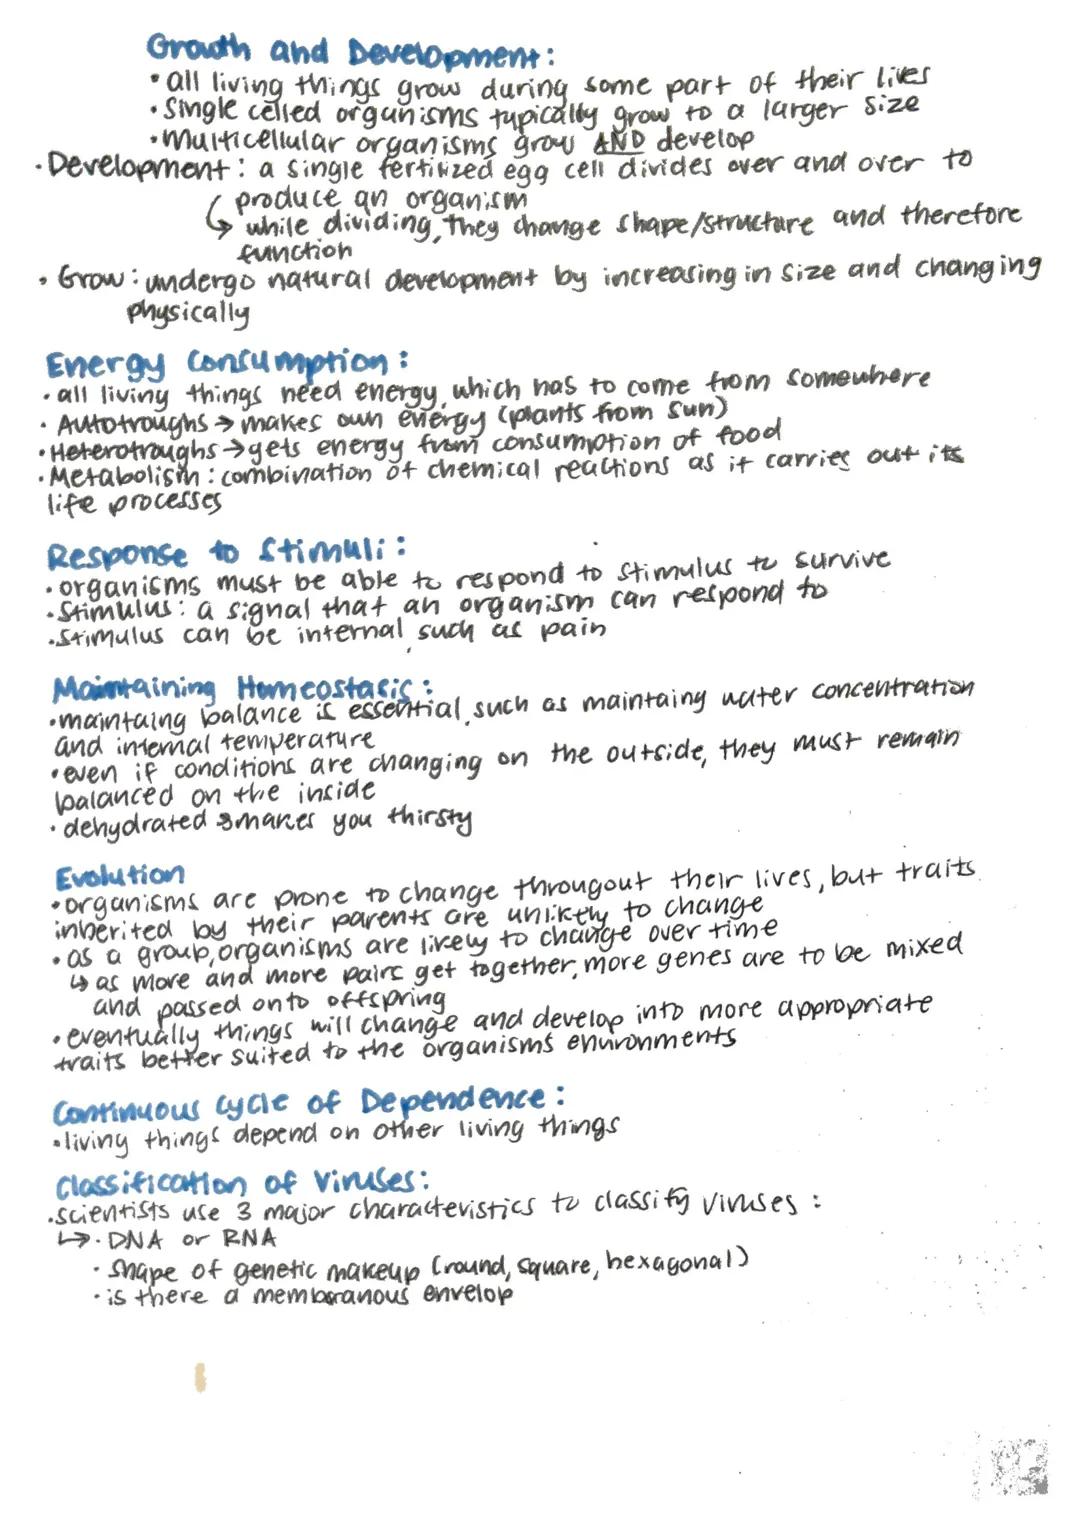 Growth and Development:
• all living things grow during some part of their lives
• single celled organisms typically grow to a larger size
• Multicellular organisms grow AND develop
• Development: a single fertilized egg cell divides over and over to
produce an organism
↳ while dividing, they change shape/structure and therefore
function
• Grow: undergo natural development by increasing in size and changing
physically
Energy Consumption:
• all living things need energy, which has to come from somewhere
• Autotroughs → makes own energy (plants from sun)
• Heterotroughs → gets energy from consumption of food
• Metabolism: combination of chemical reactions as it carries out its
life processes
Response to Stimuli:
• organisms must be able to respond to stimulus to survive
• Stimulus: a signal that an organism can respond to
• Stimulus can be internal, such as pain
Maintaining Homeostasis:
• maintaing balance is essential, such as maintaing water concentration
and internal temperature
• even if conditions are changing on the outside, they must remain
balanced on the inside
• dehydrated → makes you thirsty
Evolution
• organisms are prone to change througout their lives, but traits
inberited by their parents are unlikely to change
• as a group, organisms are likely to change over time
↳ as more and more pairs get together, more genes are to be mixed
and passed onto offspring
• eventually things will change and develop into more appropriate
traits better suited to the organisms environments
Continuous Cycle of Dependence:
• living things depend on other living things
Classification of Viruses:
• scientists use 3 major characteristics to classify viruses:
↳ • DNA or RNA
• shape of genetic makeup (round, square, hexagonal)
• is there a membranous envelop